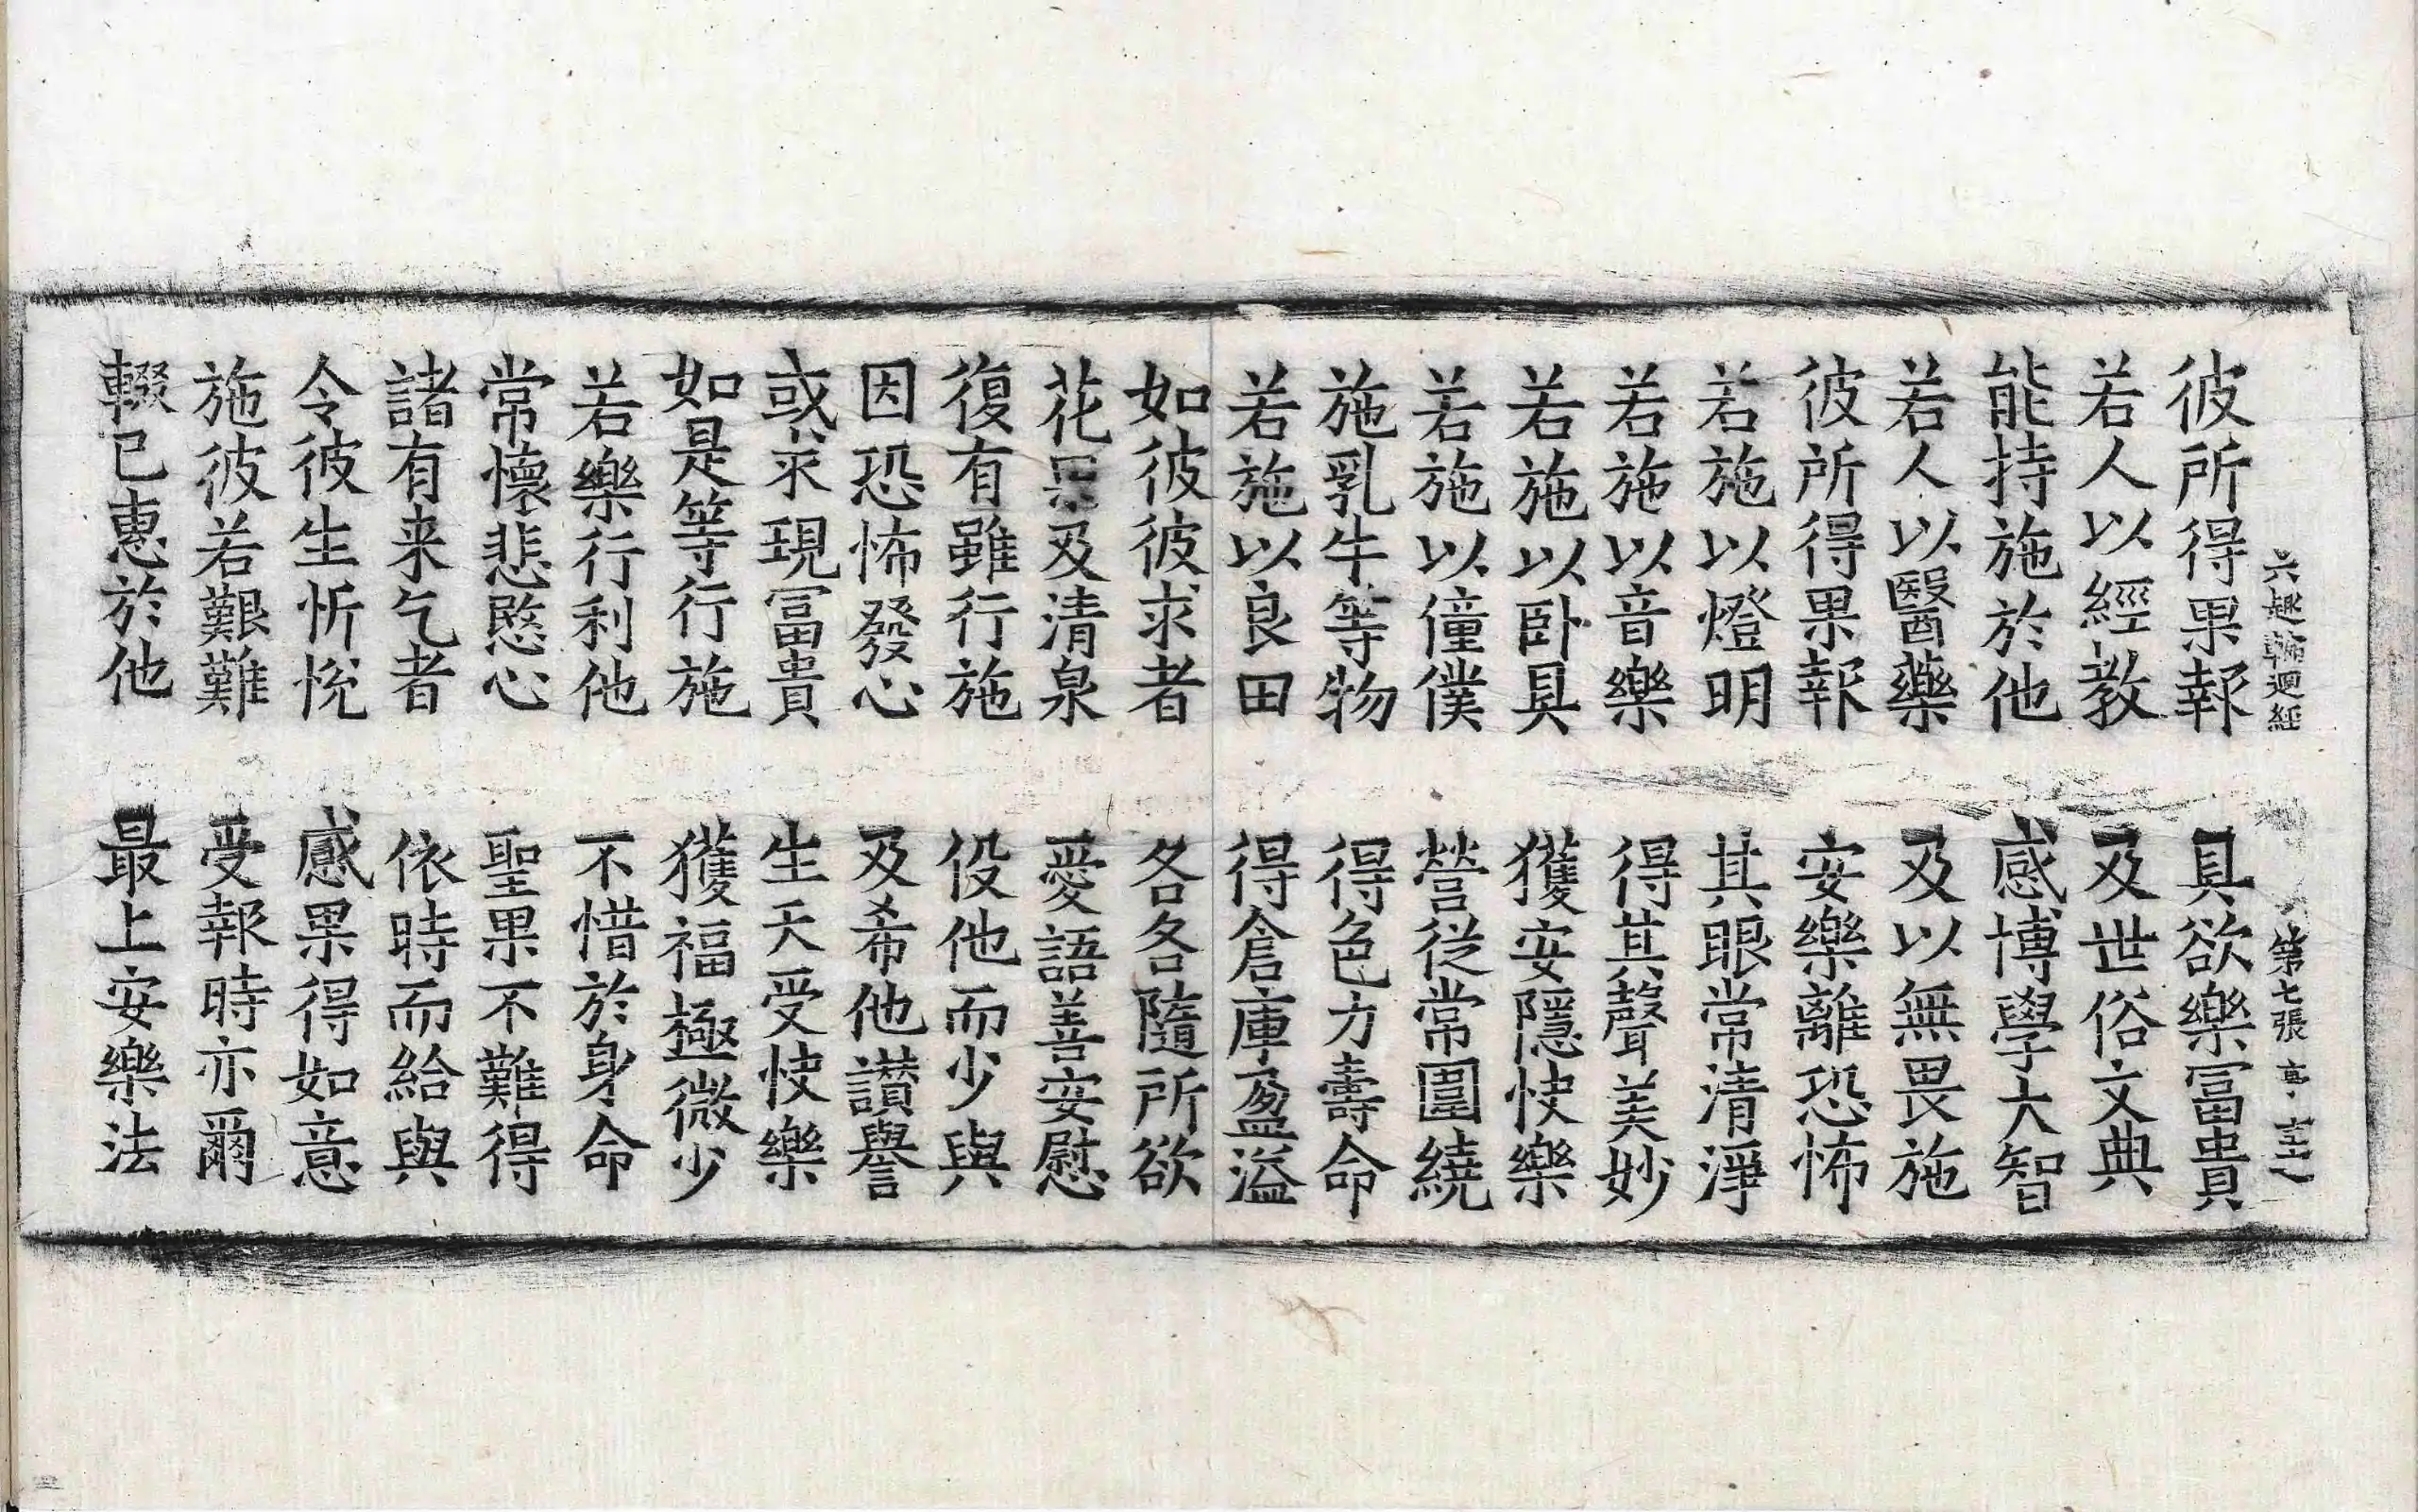 六趣輪迴經 第七張
彼所得果報 具欲樂冨貴
若人以經教 及世俗文典
能持施於他 感博學大智
若人以醫藥 及以無畏施
彼所得果報 安樂離恐怖
若施以燈明 其眼常清淨
若施以音樂 得其聲美妙
若施以卧具 獲安隱快樂
若施以僮僕 營從常圍繞
施乳牛等物 得色力壽命
若施以良田 得倉庫盈溢
如彼彼求者 各各隨所欲
花果及清泉 愛語善安慰
復有雖行施 役他而少與
因恐怖發心 及希他讚譽
或求現冨貴 生天受快樂
如是等行施 獲福極微少
若樂行利他 不惜於身命
常懷悲愍心 聖果不難得
諸有来乞者 依時而給與
令彼生忻悅 感果得如意
施彼若艱難 受報時亦爾
輟已惠於他 最上安樂法